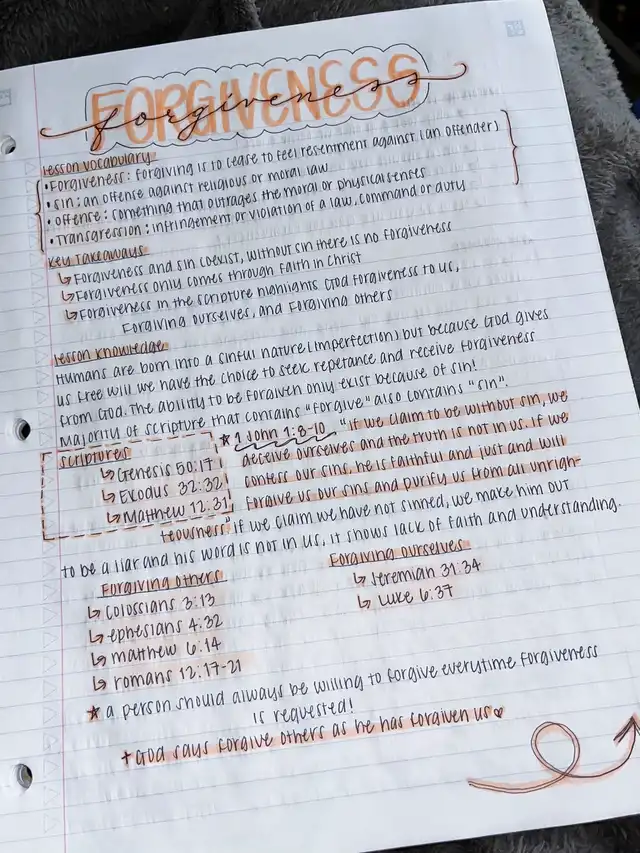 FORGIVENESS
forgiveness
lesson vocabulary
• Forgiveness: forgiving is to cease to feel resentment against (an offender)
• sin: an offense against religious or moral law
• offense: something that outrages the moral or physical senses
• Transgression: infringement or violation of a law, command or duty
Key Takeaways
↳ Forgiveness and sin coexist, without sin there is no forgiveness
↳ Forgiveness only comes through faith in Christ
↳ Forgiveness in the scripture highlights God forgiveness to us,
Forgiving ourselves, and forgiving others
lesson knowledge
Humans are born into a sinful nature (imperfection) but because God gives
us free will we have the choice to seek repetance and receive forgiveness
from God. The ability to be forgiven only exist because of sin!
Majority of scripture that contains "forgive" also contains "sin".
scriptures
↳ Genesis 50:17
↳ Exodus 32:32
↳ Matthew 12:31
★ 1 John 1:8-10 "if we claim to be without sin, we
deceive ourselves and the truth is not in us. If we
confess our sins, he is faithful and just and will
forgive us our sins and purify us from all unrigh-
teousness" if we claim we have not sinned, we make him out
to be a liar and his word is not in us, it shows lack of faith and understanding.
Forgiving others
↳ Colossians 3:13
↳ ephesians 4:32
↳ matthew 6:14
↳ romans 12:17-21
Forgiving ourselves
↳ Jeremiah 31:34
↳ Luke 6:37
★ a person should always be willing to forgive everytime forgiveness
is requested!
+ God says forgive others as he has forgiven us ♡